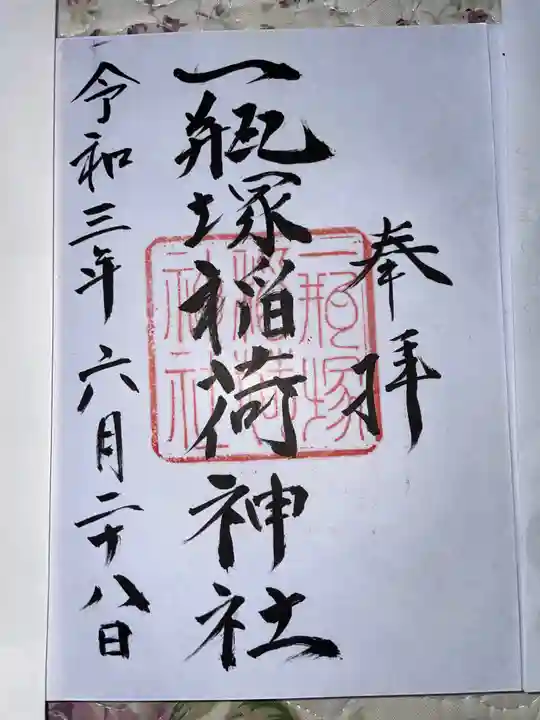 奉拝
一瓶塚稲荷神社
一瓶塚
稲荷
神社
令和三年六月二十八日